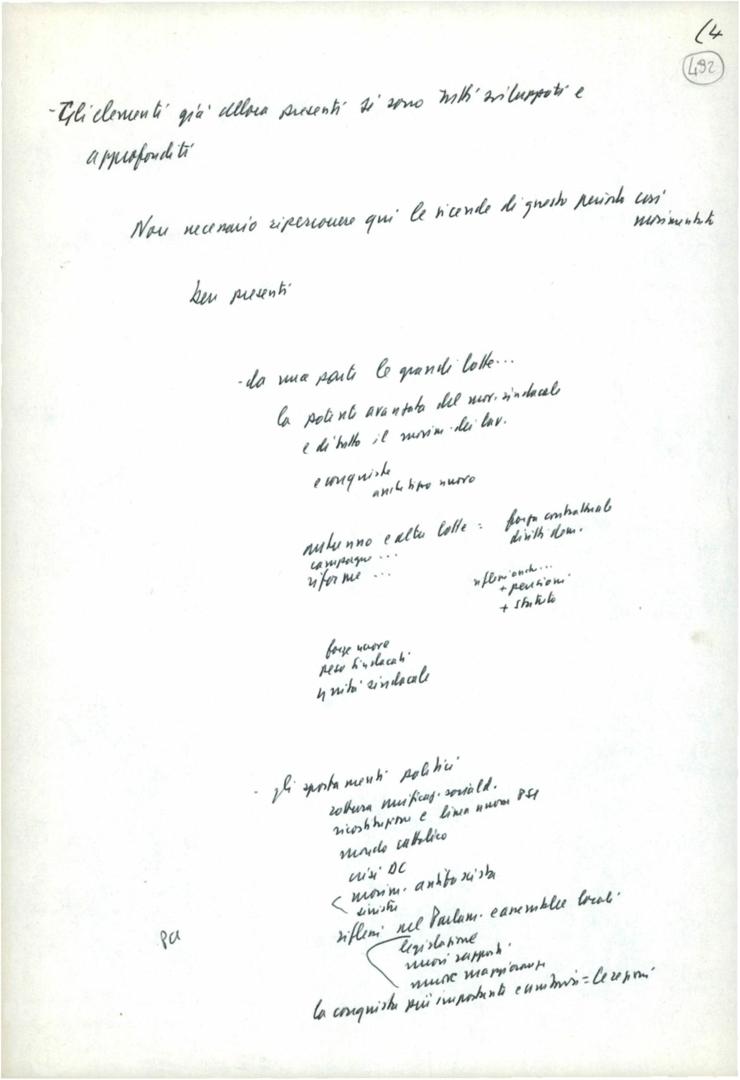 (4
492
- Gli elementi già allora presenti si sono tutti sviluppati e
approfonditi
Non necessario ripercorrere qui le vicende di questo periodo così
movimentato
ben presenti
- da una parte le grandi lotte...
la potente avanzata del mov. sindacale
e di tutto il movim. dei lav.
e conquiste
anche tipo nuovo
autunno e altre lotte = forza contrattuale
diritti dem.
campagne ...
riforme ...
riflessi anche...
+ pensioni
+ statuto
forze nuove
peso sindacati
unità sindacale
- gli spostamenti politici
rottura unificaz. sociald.
ricostituzione e linea nuova PSI
mondo cattolico
crisi DC
movim. antifascista
sinistre
riflessi nel Parlam. e assemblee locali
legislazione
nuovi rapporti
nuove maggioranze
PCI
la conquista più importante e unitaria = le regioni